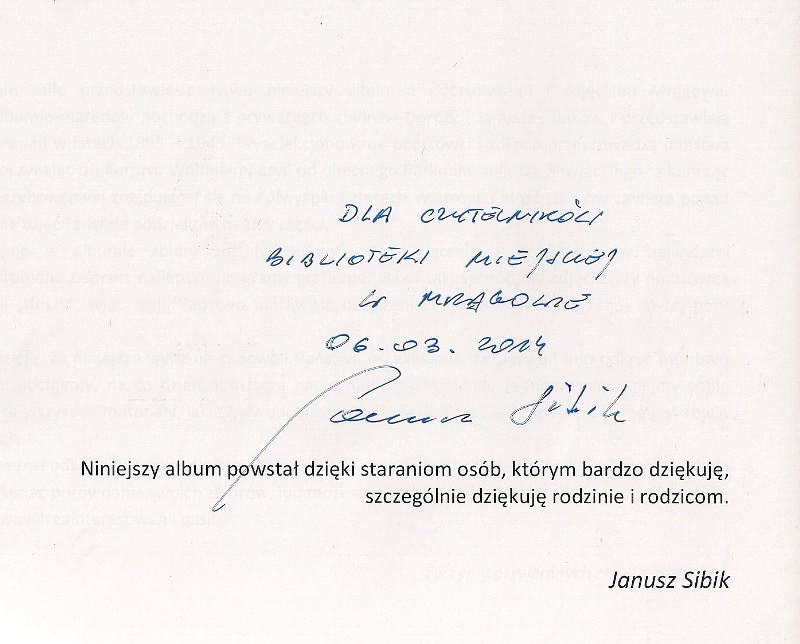 DLA CZYTELNIKÓW
BIBLIOTEKI MIEJSKIEJ
W MRĄGOWIE
06.03.2014
Janusz Sibik
Niniejszy album powstał dzięki staraniom osób, którym bardzo dziękuję,
szczególnie dziękuję rodzinie i rodzicom.
Janusz Sibik